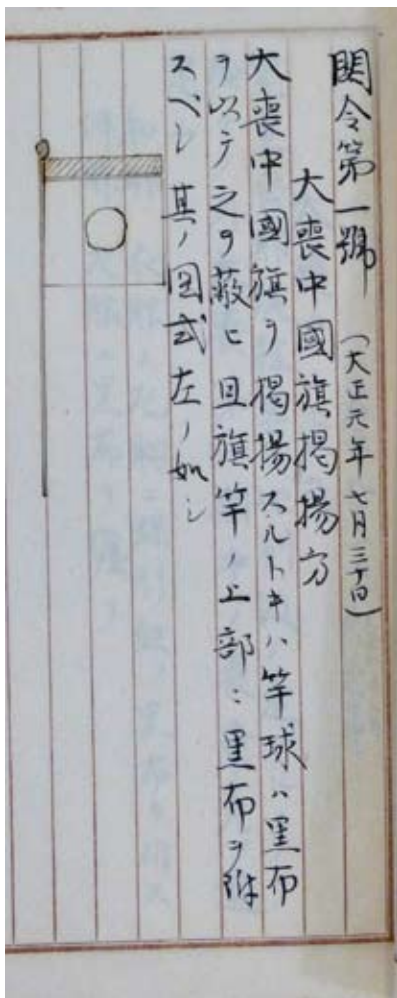 閣令第一號（大正元年七月三十日）
大喪中國旗揭揚方
大喪中國旗ヲ揭揚スルトキハ竿球ハ黒布
ヲ以テ之ヲ蔽ヒ且旗竿ノ上部ニ黒布ヲ附
スベシ其ノ図式左ノ如シ